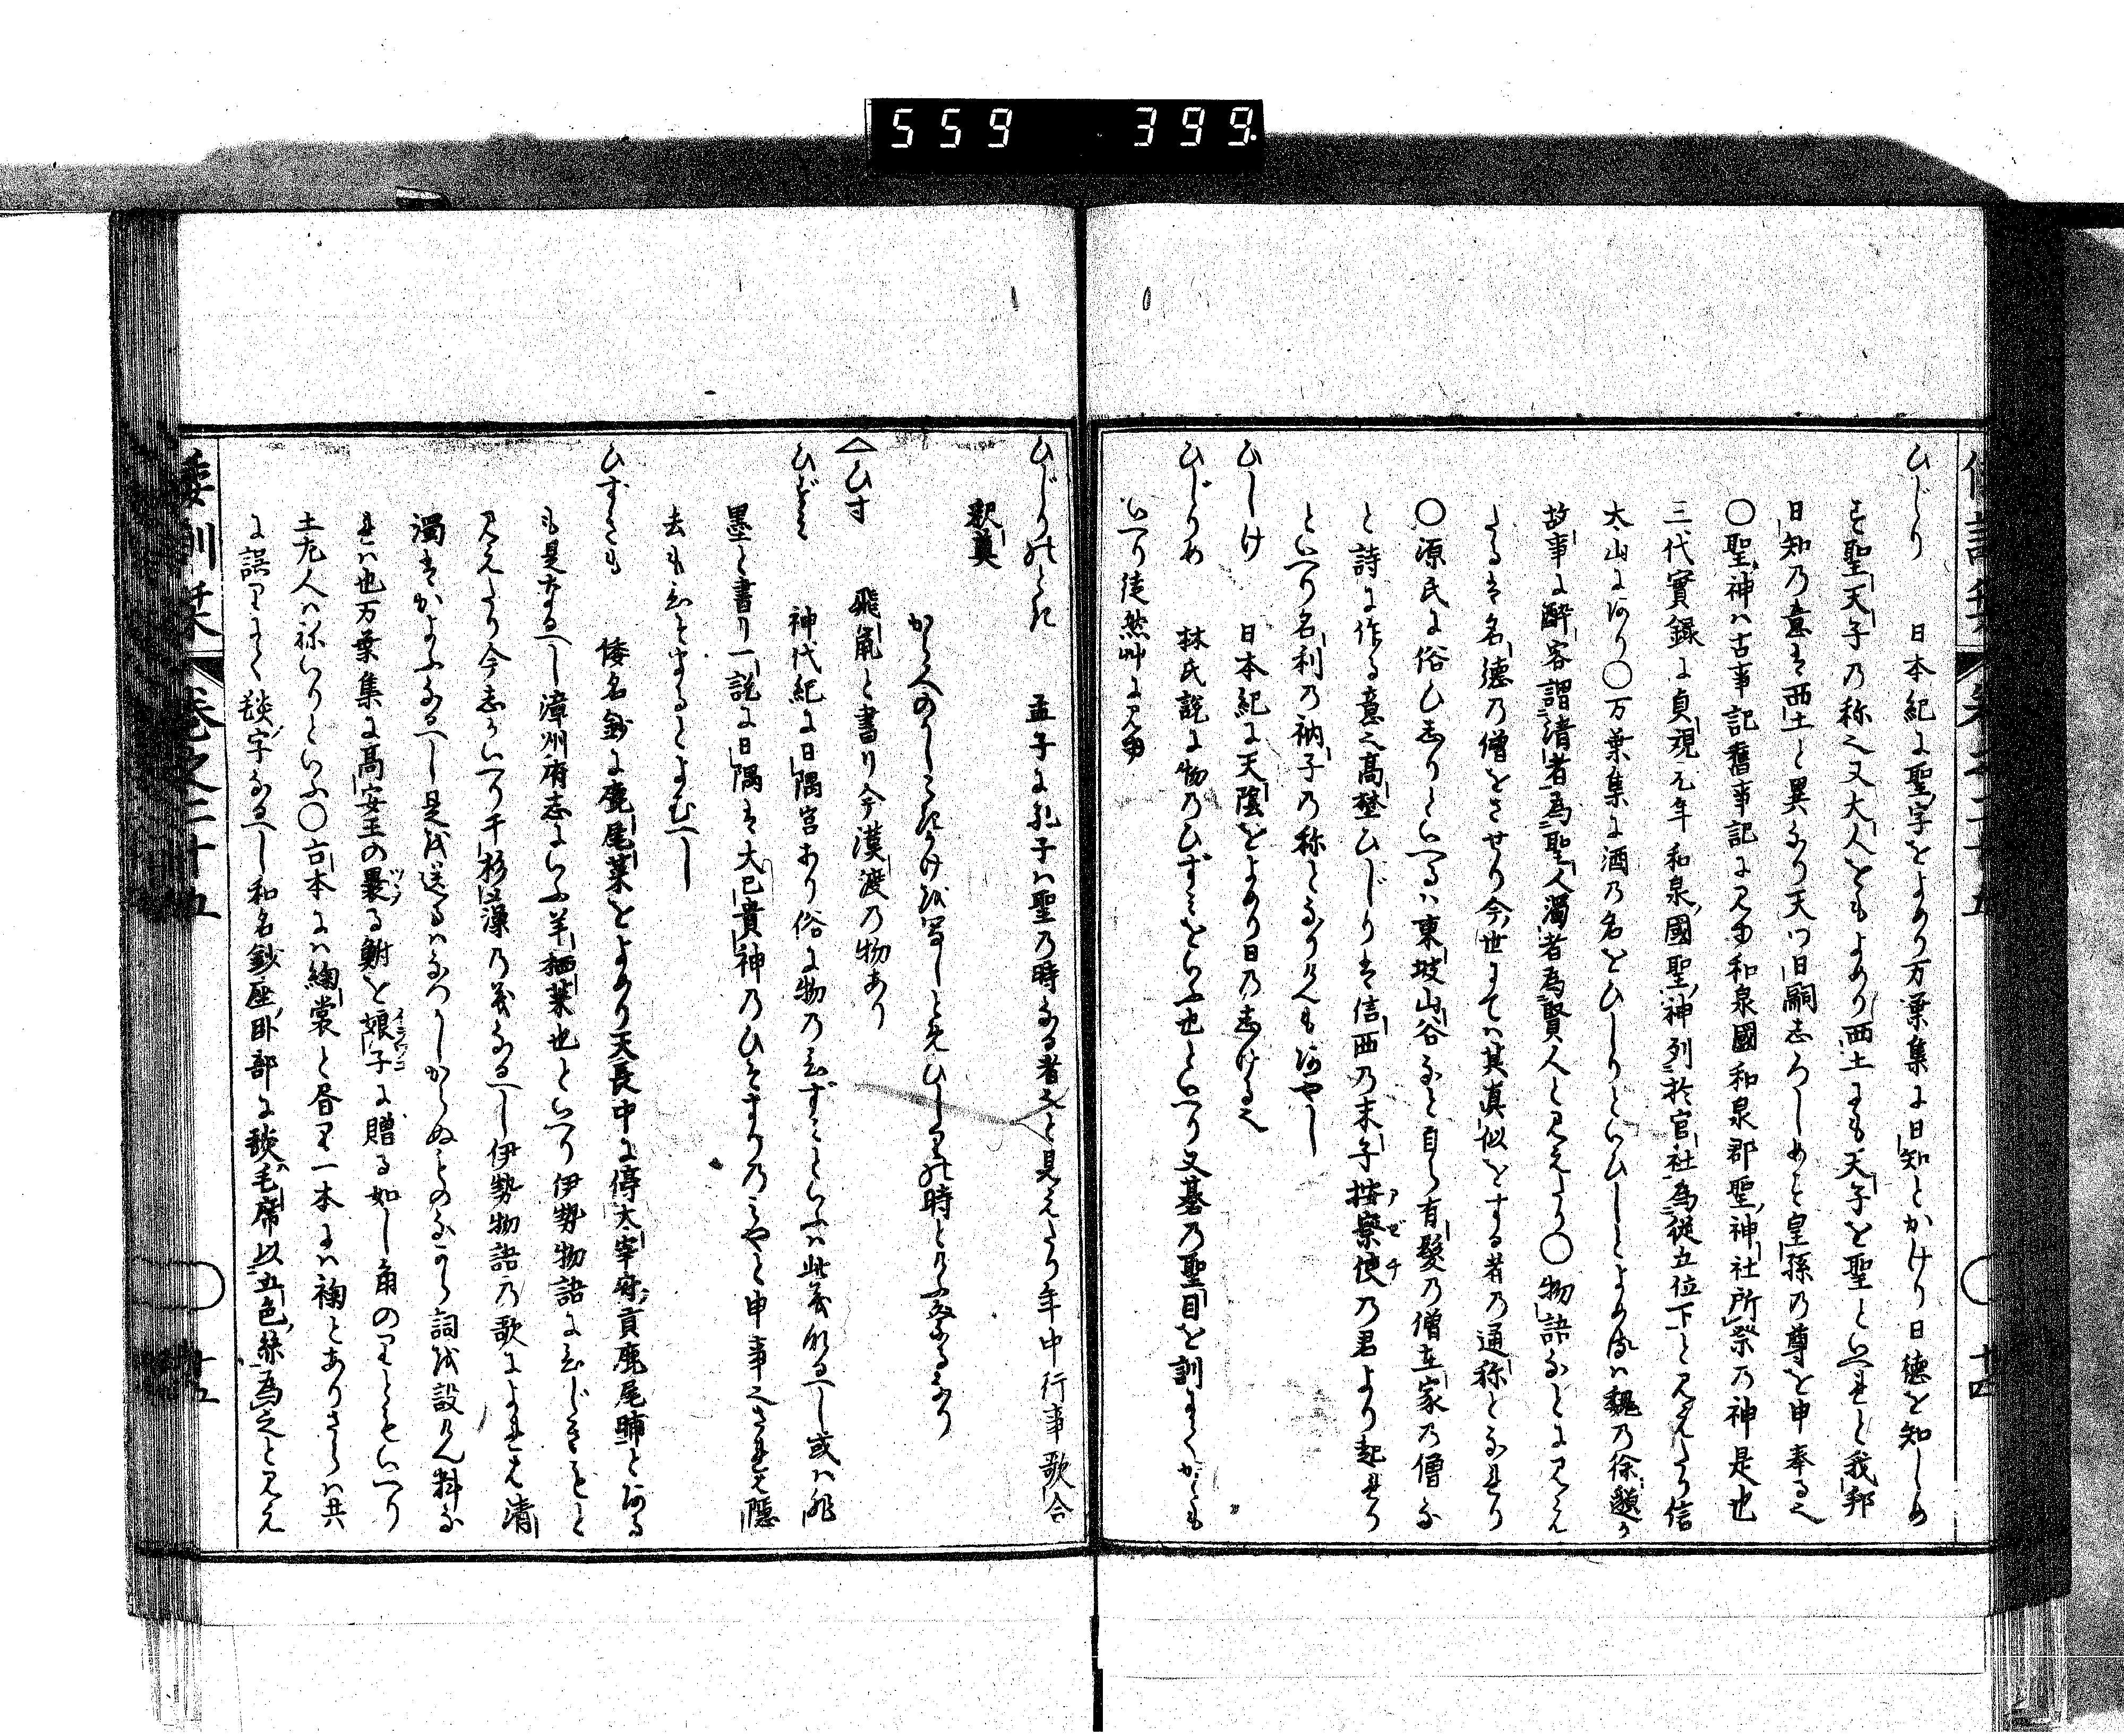 559 399
ひじり 日本紀に聖字をよめり万葉集に日知とかけり日徳を知しめ
す聖天子の称也又大人をもよめり西土にも天子を聖といへれと我邦
日知の意は西土と異なり天つ日嗣しろしめす皇孫の尊を申奉る也
〇聖神は古事記舊事記に見ゆ和泉國和泉郡聖神社所祭の神是也
三代實録に貞観元年和泉國聖神列於官社為従五位下と見えたり信
太山にあり〇万葉集に酒の名をひしりといひしとよめるは魏の徐邈か
故事に酔客謂清者為聖人濁者為賢人と見えたり〇物語なとに見え
たるは名徳の僧をさせり今世にては其真似をする者の通称となれり
〇源氏に俗ひしりといへるは東坡山谷なと自ら有髪の僧在家の僧な
と詩に作る意也高埜ひじりは信西の末子按察使の君より起れり
アゼチ
といへり名利の衲子の称となりけんもあやし
ひしけ 日本紀に天陰をよめり日のしける也
ひじりめ 林氏説に物のひずみをいふ也といへり又碁の聖目を訓にてかくも
いへり徒然艸に見ゆ
倭訓栞 巻之二十五 十四
ひじりのとき 孟子に孔子は聖の時なる者也と見えたり年中行事歌合
釈奠
から人のかしこきかけを写しとめひしりの時とけふまつるなり
△ひす 飛甬と書り今漢渡の物あり
ひずみ 神代紀に日隅宮あり俗に物のひずみといふは此義なるへし或は飛
墨と書り一説に日隅は大己貴神のひそまりのみやと申事也されは隠
去もひそまるとよむへし
ひずきも 倭名鈔に鹿尾菜をよめり天長中に停太宰府貢鹿尾脯とある
も是なるへし漳州府志にいふ羊栖菜也といへり伊勢物語にひじきもと
見えたり今しかいへり干杉藻の義なるへし伊勢物語の歌によれは清
濁はかよふなるへし是を送るはなつかしからぬものなから詞を設けん料な
れは也万葉集に高安王の裹る鮒を娘子に贈る如し角のりともいへり
ツヽメ
イラツコ
土左人はねいりといふ〇古本には𦀌裳と昏り一本には裪とありさらは共
に誤りにて毯字なるへし和名鈔座臥部に毯毛席以五色絲為之と見え
倭訓栞 巻之二十五 十五